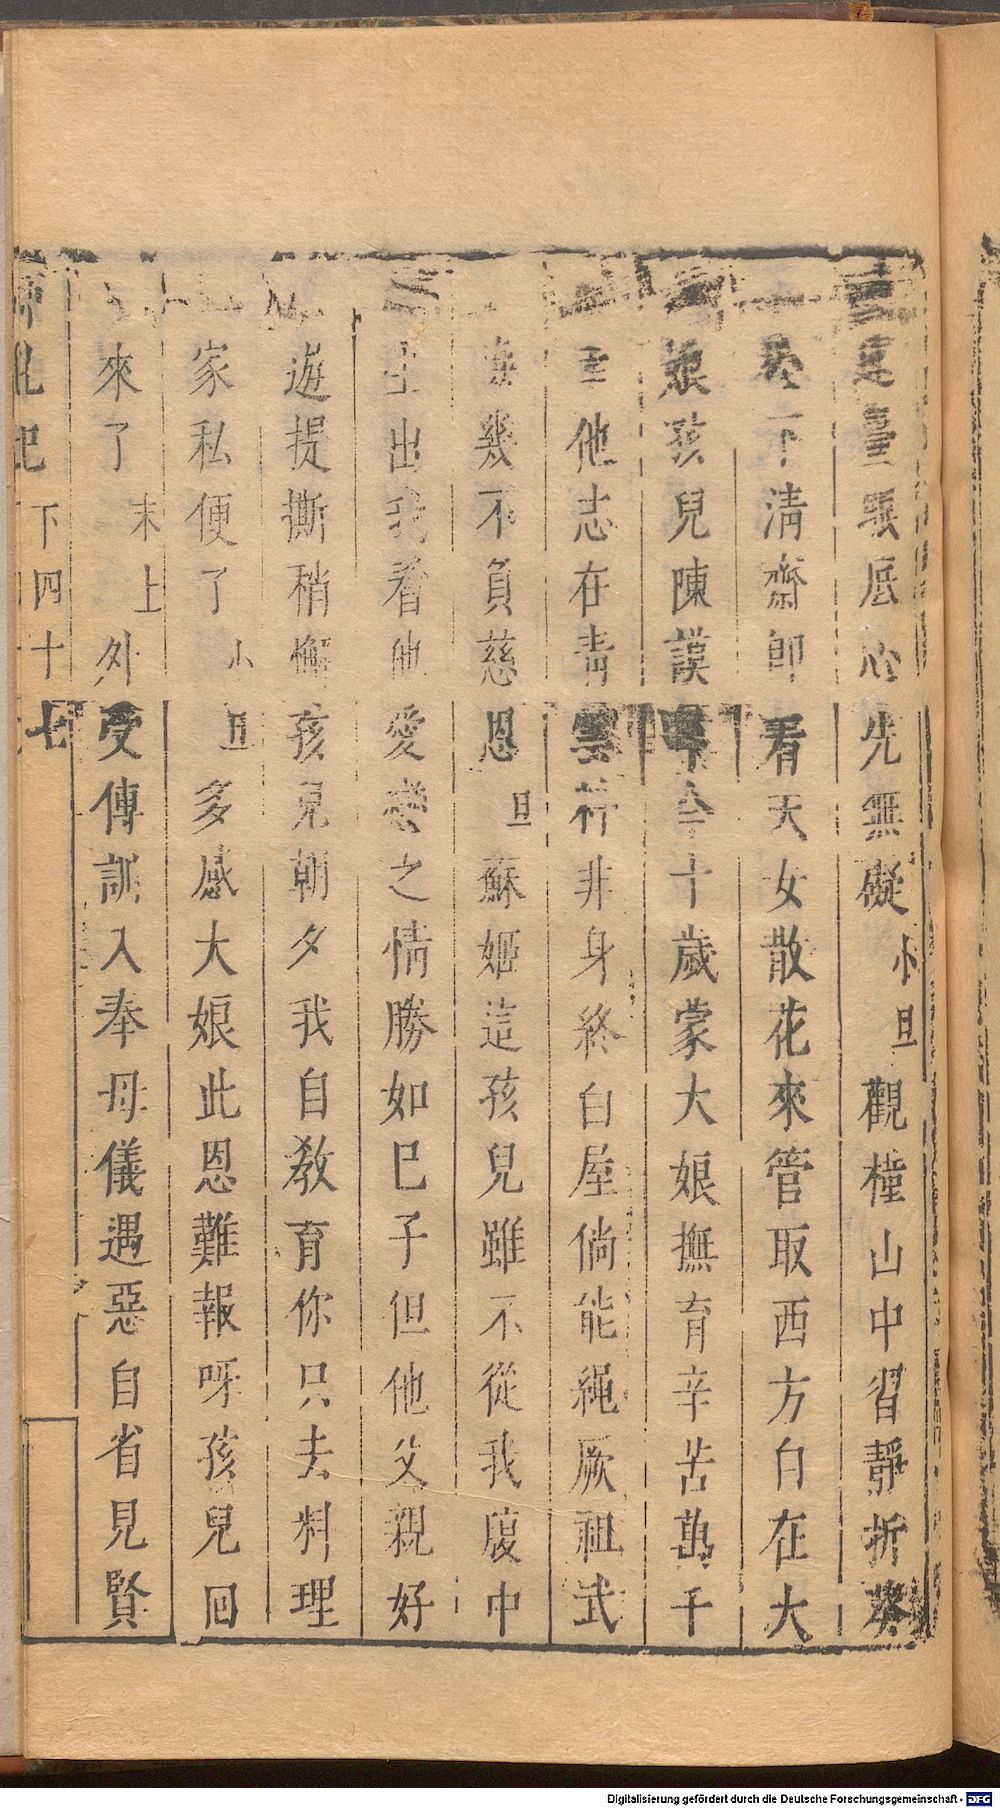 臺眼底心先無礙小旦觀橦山中習靜折葵
下清齋即看天女散花來管取西方白在大
娘孩兒陳謨年今十歲蒙大娘撫育辛苦萬千
他志在青雲材非身終白屋倘能繩厥祖武
幾不負慈恩旦蘇姬這孩兒雖不從我腹中
生出我看他愛戀之情勝如已子但他父親好
遊提撕稍懈孩兒朝夕我自教育你只去料理
家私便了小旦多感大娘此恩難報呀孩兒回
來了末上外受傳訓入奉母儀遇惡自省見賢
記下四十七
Digitalisierung gefördert durch die Deutsche Forschungsgemeinschaft - DFG